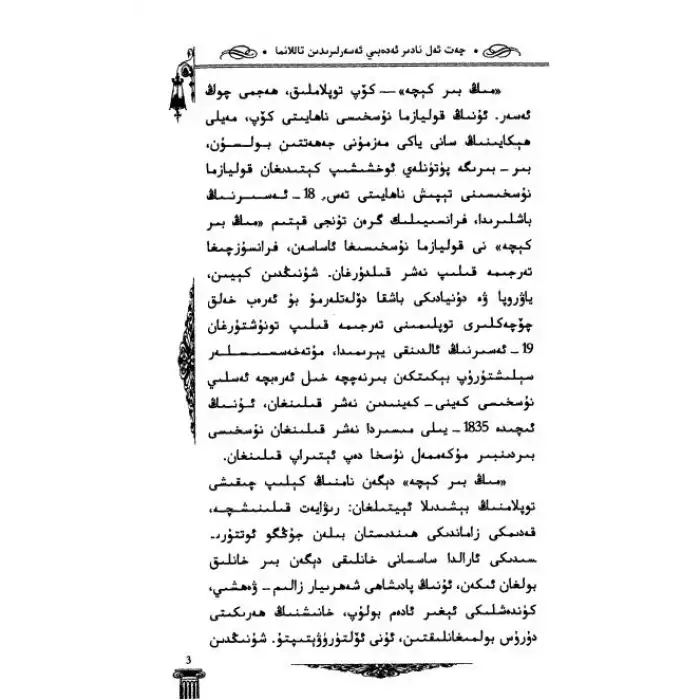 چەت ئەل نادىر ئەدەبىي ئەسەرلىرىدىن تاللانما
«مىڭ بىر كېچە» — كۆپ توپلاملىق، ھەجمى چوڭ
ئەسەر. ئۇنىڭ قوليازما نۇسخىسى ناھايىتى كۆپ، مەيلى
ھېكايىنىڭ سانى ياكى مەزمۇنى جەھەتتىن بولسۇن،
بىر – بىرىگە پۈتۈنلەي ئوخشىشىپ كېتىدىغان قوليازما
نۇسخىسىنى تېپىش ناھايىتى تەس. 18 – ئەسىرنىڭ
باشلىرىدا، فرانسىيىلىك گرەن تۇنجى قېتىم «مىڭ بىر
كېچە» نى قوليازما نۇسخىسىغا ئاساسەن، فرانسۇزچىغا
تەرجىمە قىلىپ نەشر قىلدۇرغان. شۇنىڭدىن كېيىن،
ياۋروپا ۋە دۇنيادىكى باشقا دۆلەتلەرمۇ بۇ ئەرەب خەلق
چۆچەكلىرى توپلىمىنى تەرجىمە قىلىپ تونۇشتۇرغان
19 – ئەسىرنىڭ ئالدىنقى يېرىمىدا، مۇتەخەسسىسلەر
سېلىشتۇرۇپ بېكىتكەن بىرنەچچە خىل ئەرەبچە ئەسلىي
نۇسخىسى كەينى – كەينىدىن نەشر قىلىنغان، ئۇنىڭ
ئىچىدە 1835 – يىلى مىسىردا نەشر قىلىنغان نۇسخىسى
بىردىنبىر مۇكەممەل نۇسخا دەپ ئېتىراپ قىلىنغان.
«مىڭ بىر كېچە» دېگەن نامنىڭ كېلىپ چىقىشى
توپلامنىڭ بېشىدىلا ئېيتىلغان: رىۋايەت قىلىنىشچە،
قەدىمكى زاماندىكى ھىندىستان بىلەن جۇڭگو ئوتتۇرى-
سىدىكى ئارالدا ساسسانى خانلىقى دېگەن بىر خانلىق
بولغان ئىكەن، ئۇنىڭ پادىشاھى شەھرىيار زالىم – ۋەھشىي،
كۈندەشلىكى ئېغىر ئادەم بولۇپ، خانىشنىڭ ھەرىكىتى
دۇرۇس بولمىغانلىقتىن، ئۇنى ئۆلتۈرۈۋېتىپتۇ. شۇنىڭدىن
3